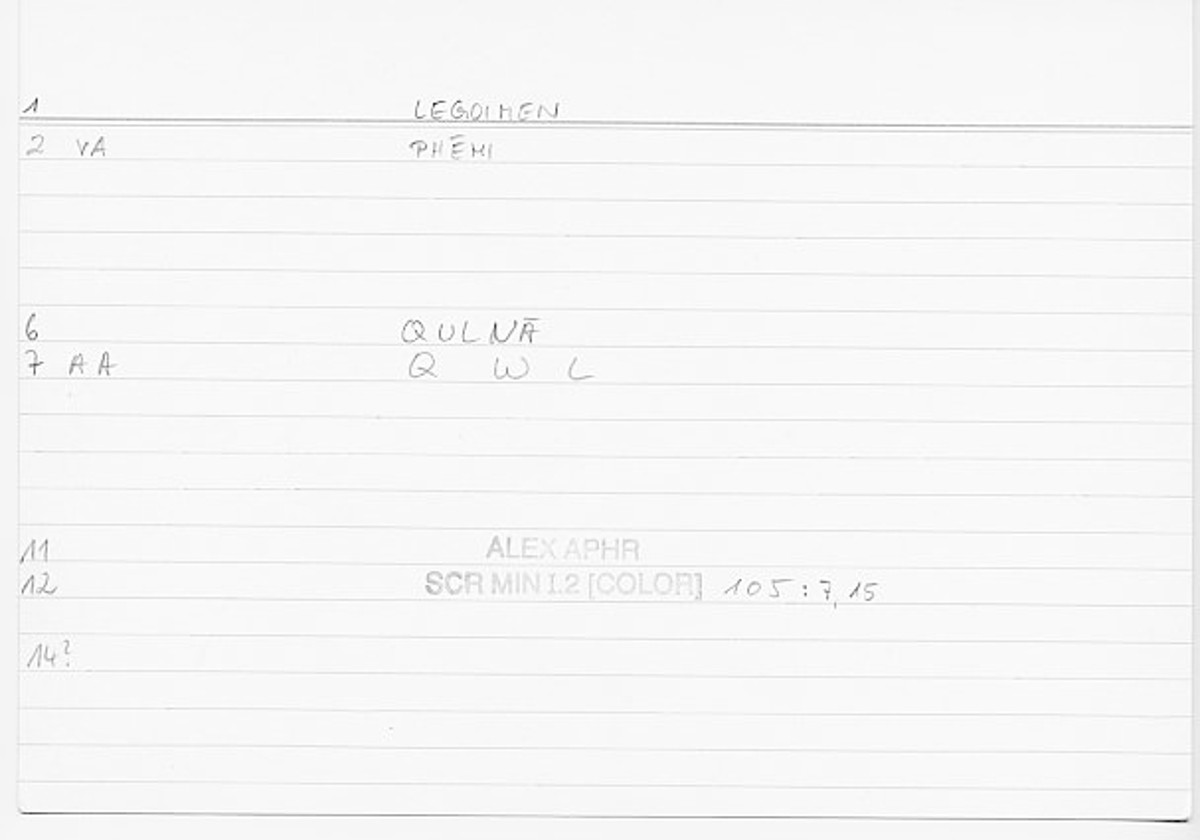 1 LEGOIMEN
2 VA PHĒMI
6 QULNĀ
7 AA Q W L
11 ALEX APHR
12 SCR MIN I.2 [COLOR] 105:7,15
14?